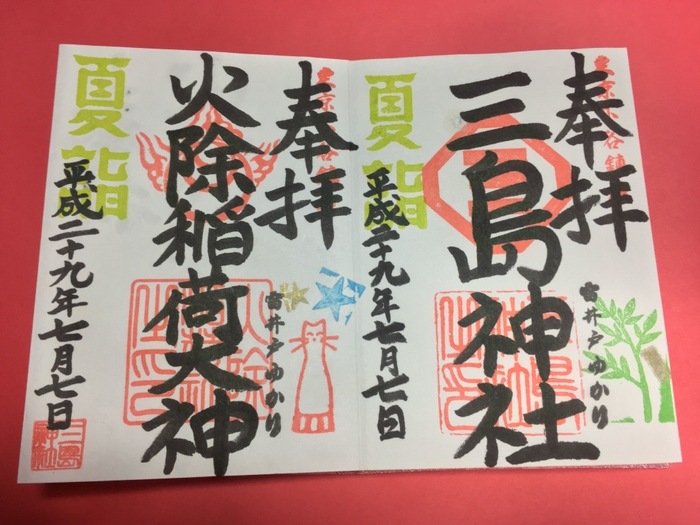 奉拝
東京下谷鎮
三島神社
雷井戸ゆかり
夏詣
平成二十九年七月七日
奉拝
火除稲荷大神
雷井戸ゆかり
夏詣
平成二十九年七月七日
三島神社